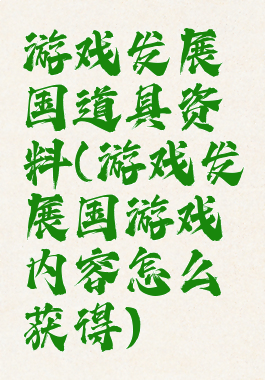 游戏发展
国道具资
料(游戏发
展国游戏
内容怎么
获得)